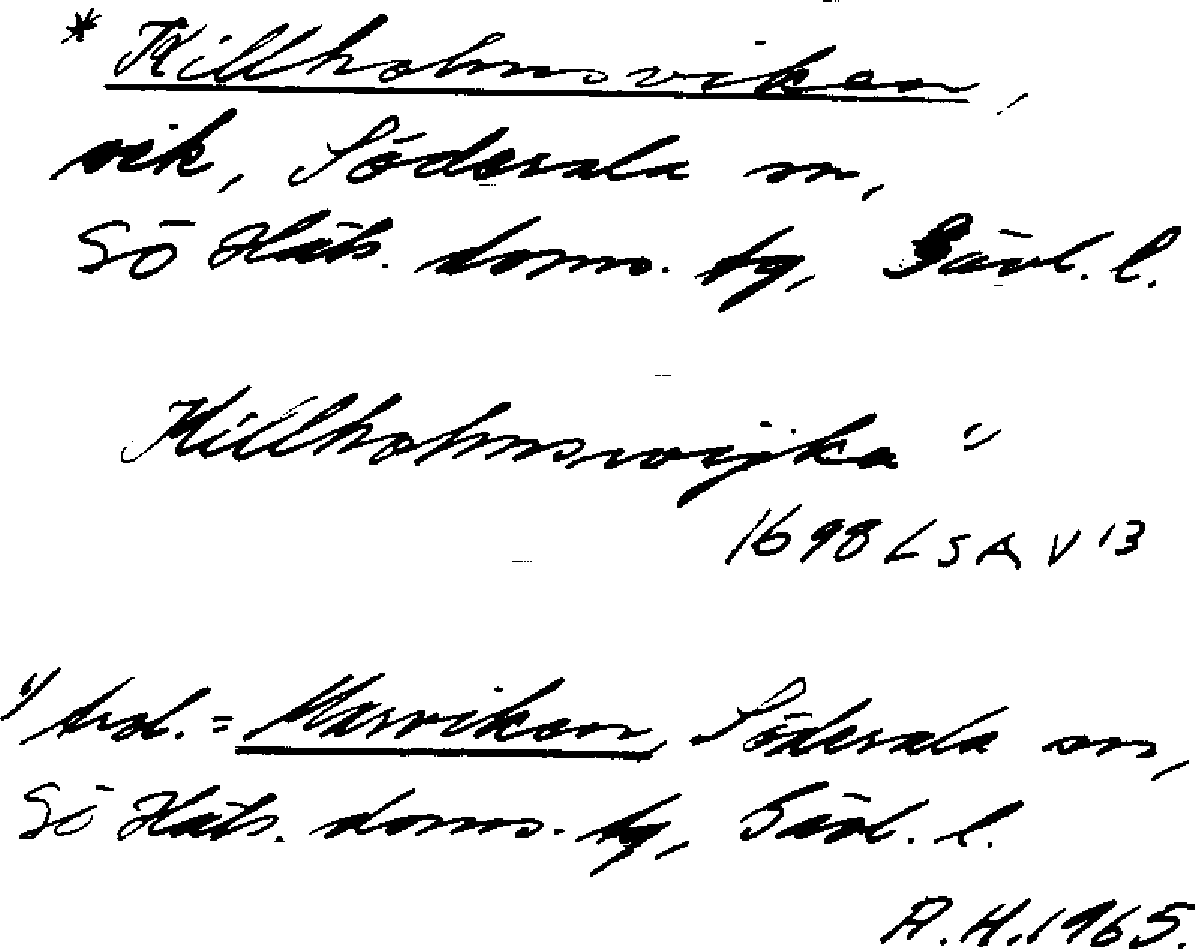 * Killholmsviken,
vik, Söderala sn,
Sö Häls. doms. tg, Gävl. l.
Killholmswijka ¹⁾
1698 LSA V 13
¹⁾ trol. = Marviken, Söderala sn,
Sö Häls. doms. tg, Gävl. l.
R.H. 1965.